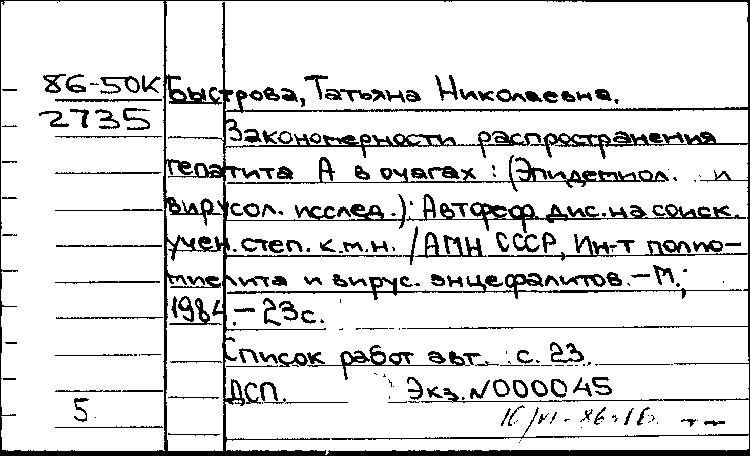 86-50К Быстрова, Татьяна Николаевна.
2735
Закономерности распространения
гепатита А в очагах : (Эпидемиол. и
вирусол. исслед.): Автореф. дис. на соиск.
учен. степ. к.м.н. / АМН СССР, Ин-т полио-
миелита и вирус. энцефалитов. – М.,
1984. – 23 с.
Список работ авт. : с. 23.
ДСП. Экз. N000045
5